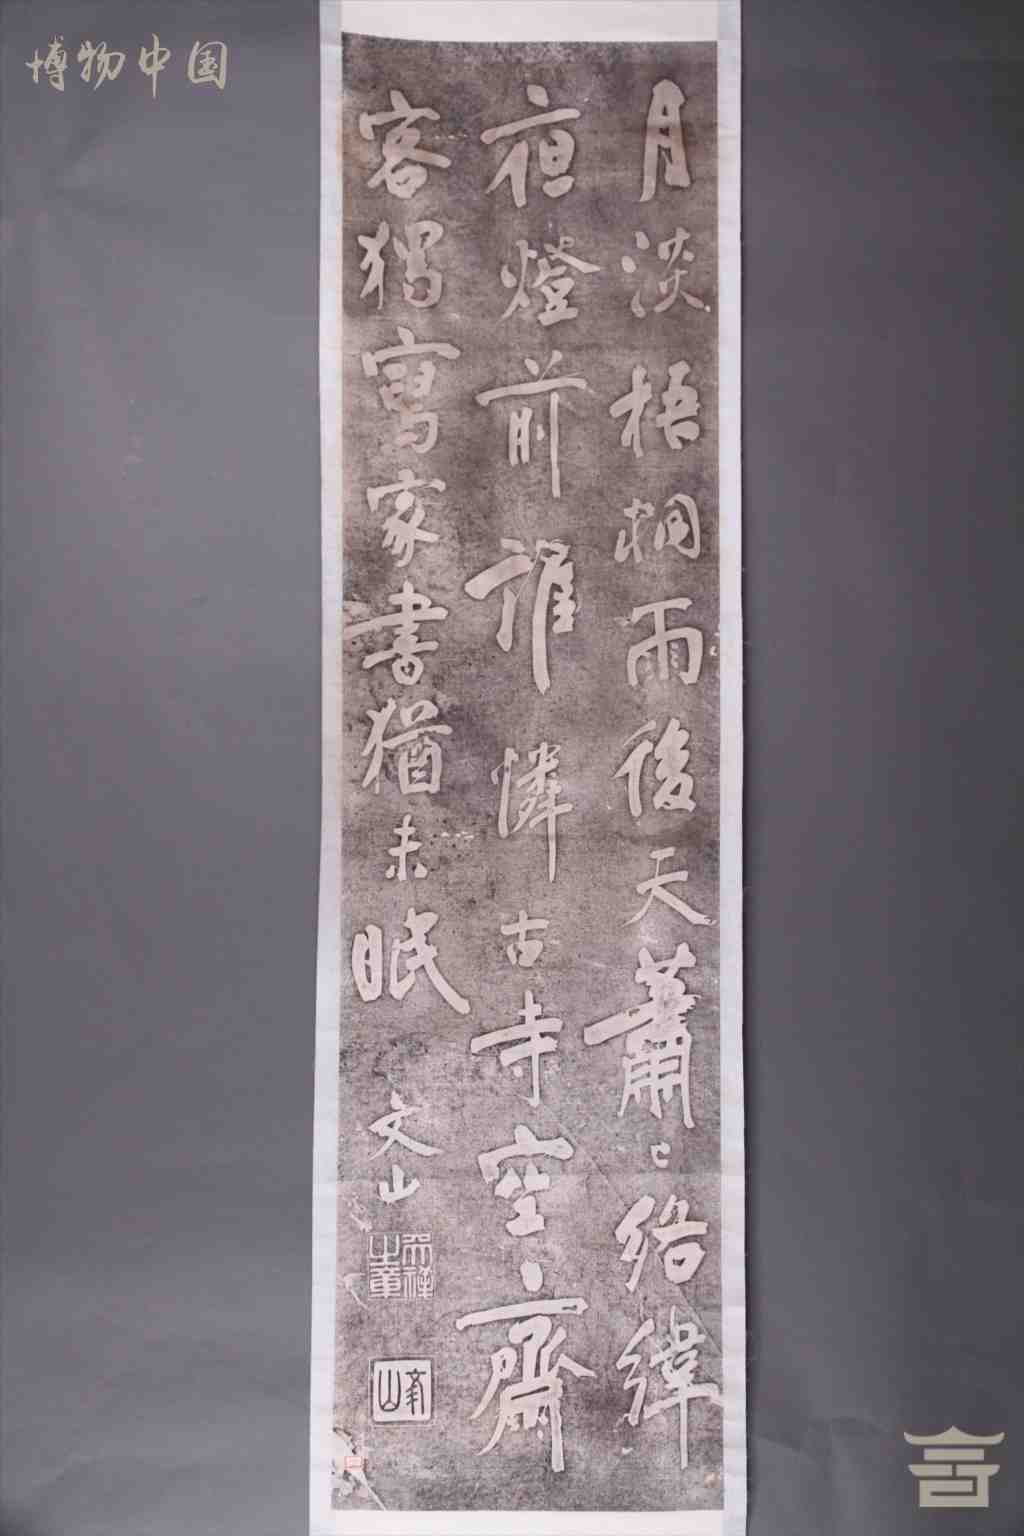 博物中国
月淡梧桐雨後天蕭〻絡緯
夜燈前誰憐古寺空齋
客獨寫家書猶未眠
文山
天祥之章
文山